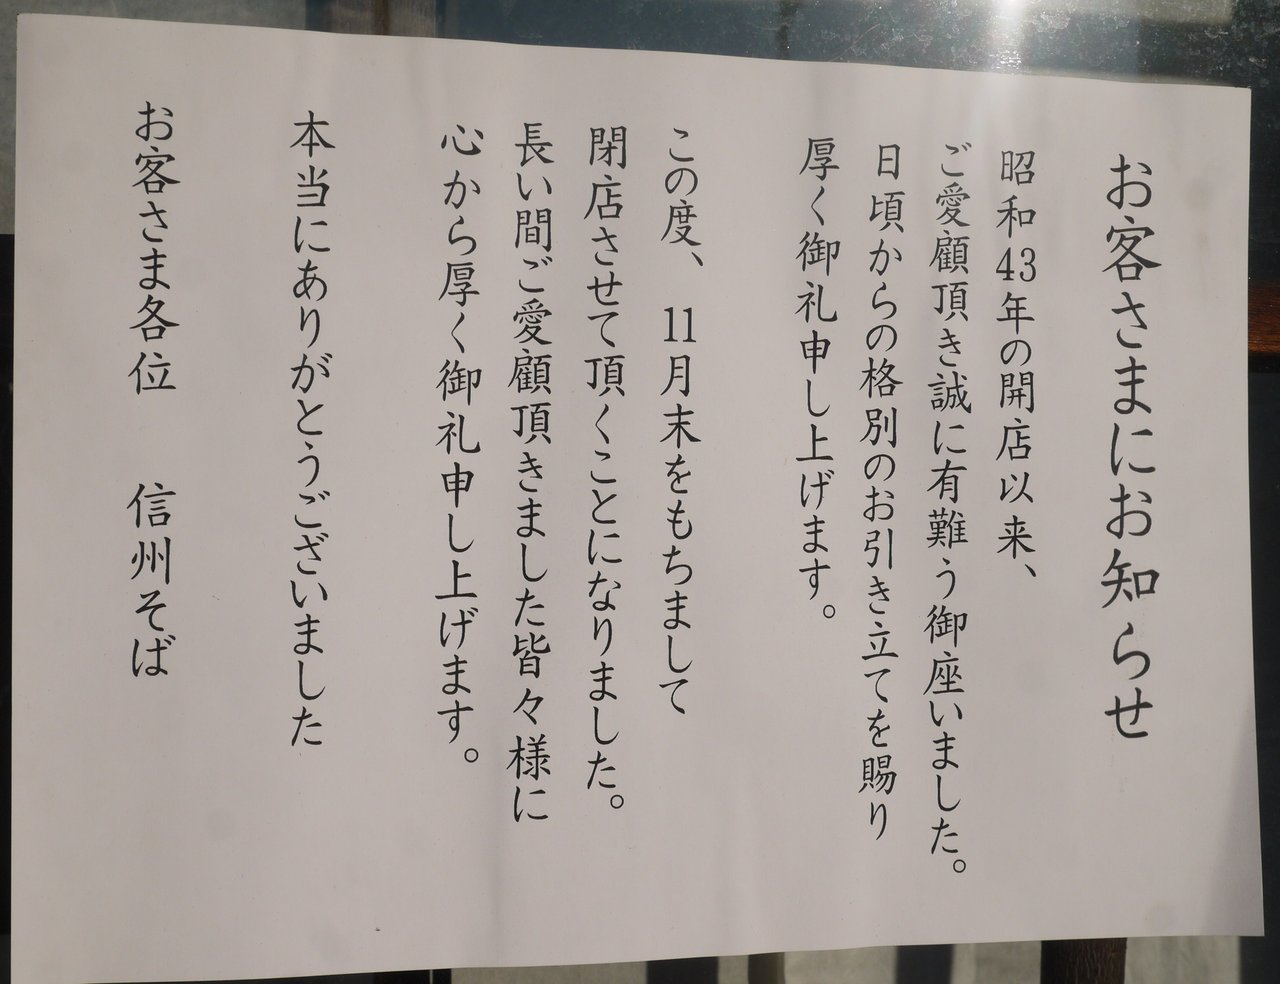 お客さまにお知らせ
昭和43年の開店以来、
ご愛顧頂き誠に有難う御座いました。
日頃からの格別のお引き立てを賜り
厚く御礼申し上げます。
この度、11月末をもちまして
閉店させて頂くことになりました。
長い間ご愛顧頂きました皆々様に
心から厚く御礼申し上げます。
本当にありがとうございました
お客さま各位　信州そば